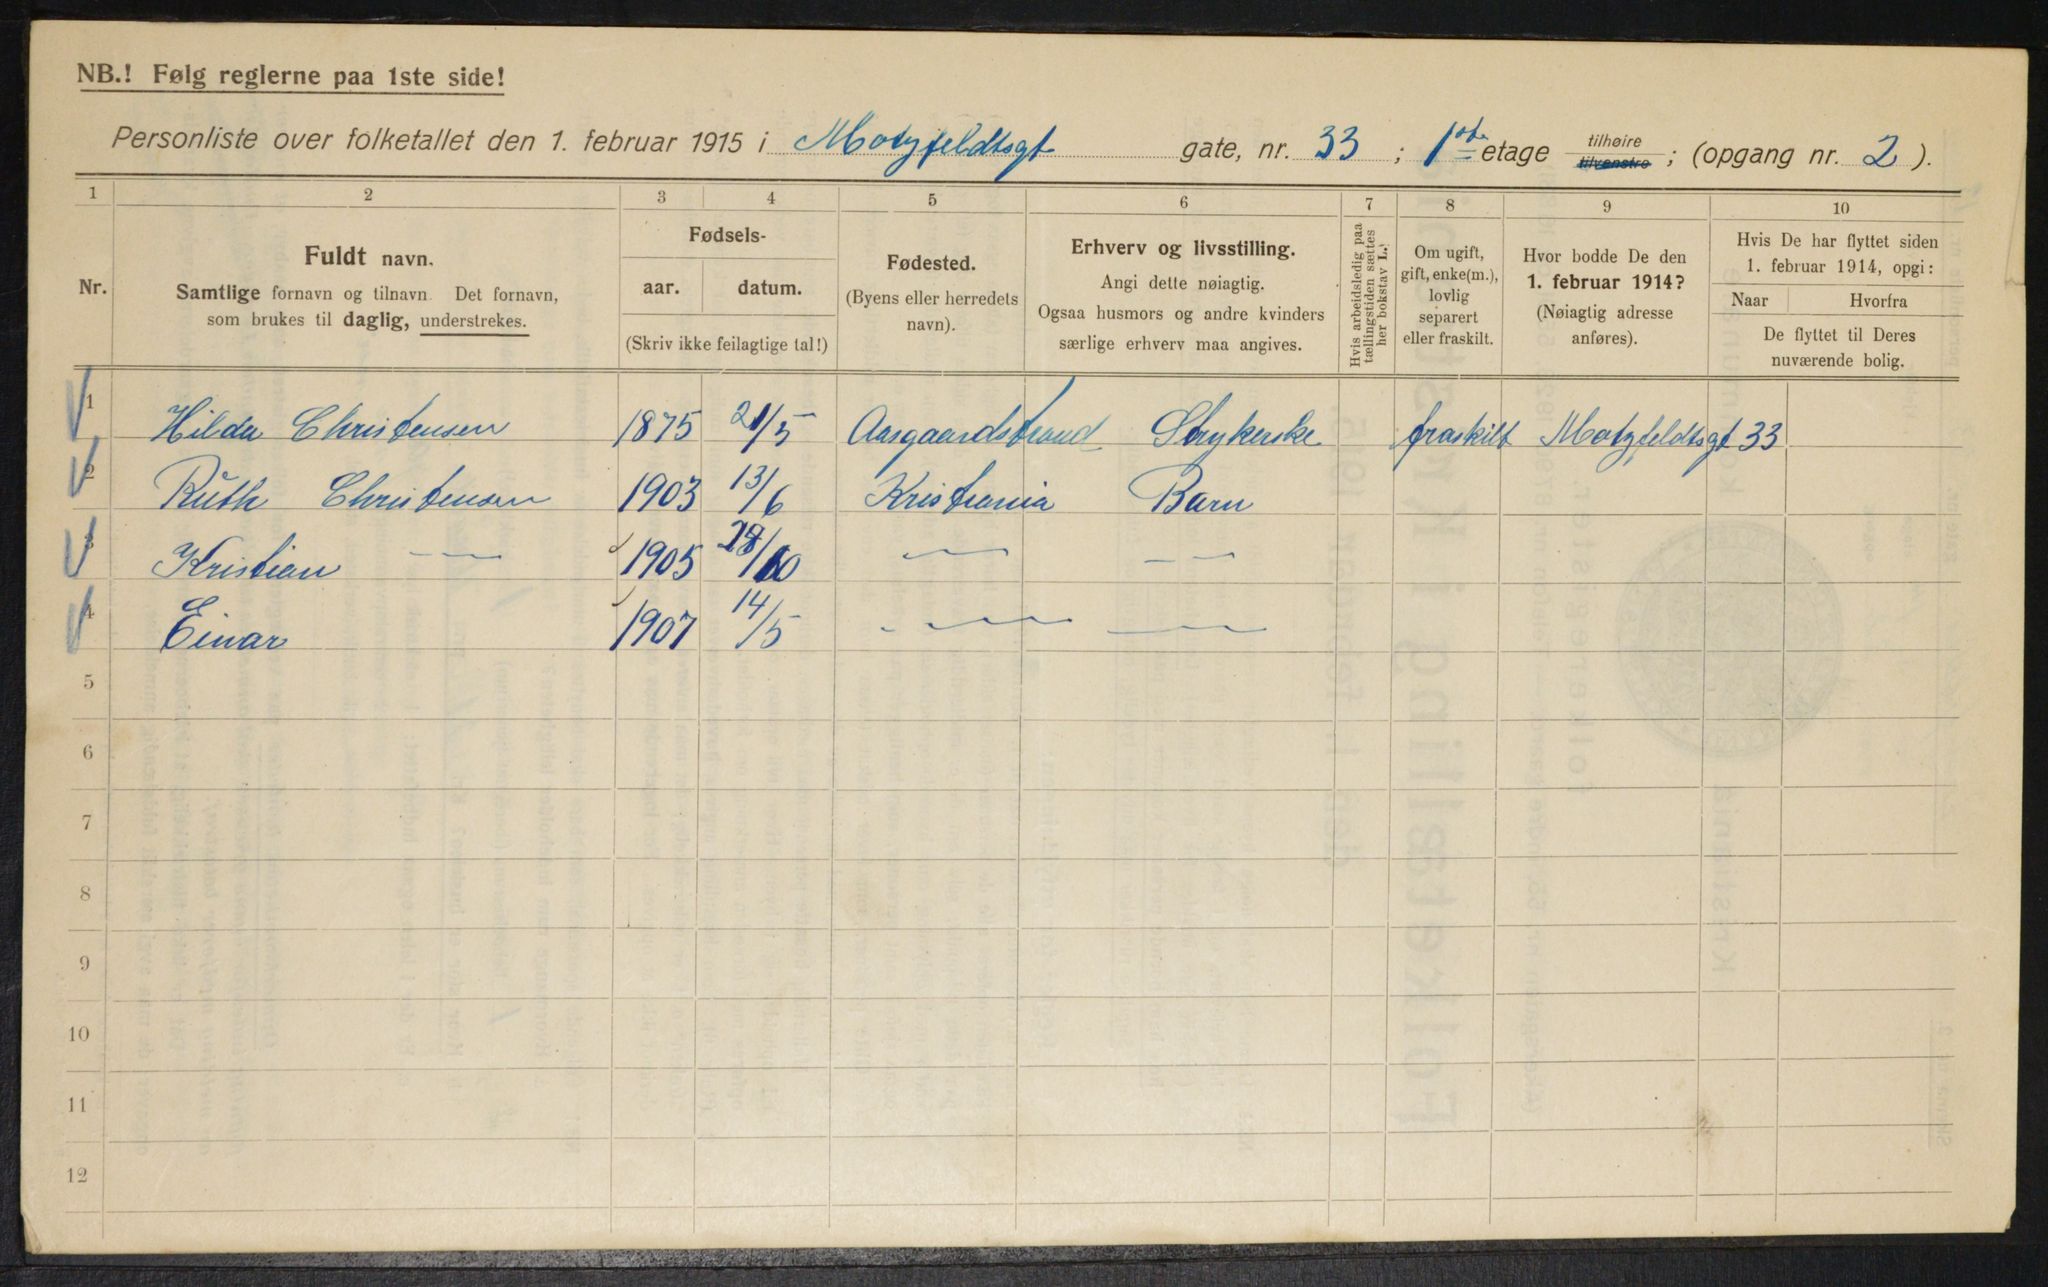 NB.! Følg reglerne paa 1ste side!
Personliste over folketallet den 1. februar 1915 i Motzfeldtsgt gate, nr. 33 ; 1ste etage tilhøire tilvenstre ; (opgang nr. 2 ).
1 2 3 4 5 6 7 8 9 10
Nr.
Fuldt navn.
Samtlige fornavn og tilnavn. Det fornavn,
som brukes til daglig, understrekes.
Fødsels-
aar. datum.
(Skriv ikke feilagtige tal!)
Fødested.
(Byens eller herredets
navn).
Erhverv og livsstilling.
Angi dette nøiagtig.
Ogsaa husmors og andre kvinders
særlige erhverv maa angives.
Hvis arbeidsledig paa
tællingstiden sættes
her bokstav L.
Om ugift,
gift, enke(m.),
lovlig
separert
eller fraskilt.
Hvor bodde De den
1. februar 1914?
(Nøiagtig adresse
anføres).
Hvis De har flyttet siden
1. februar 1914, opgi:
Naar Hvorfra
De flyttet til Deres
nuværende bolig.
1 Hilda Christensen 1875 21/5 Aasgaardstrand Strykerske fraskilt Motzfeldtsgt 33
2 Ruth Christensen 1903 13/6 Kristiania Barn
3 Kristian —〃— 1905 /10 —〃— —〃—
4 Einar 1907 14/5 —〃— —〃—
5
6
7
8
9
10
11
12